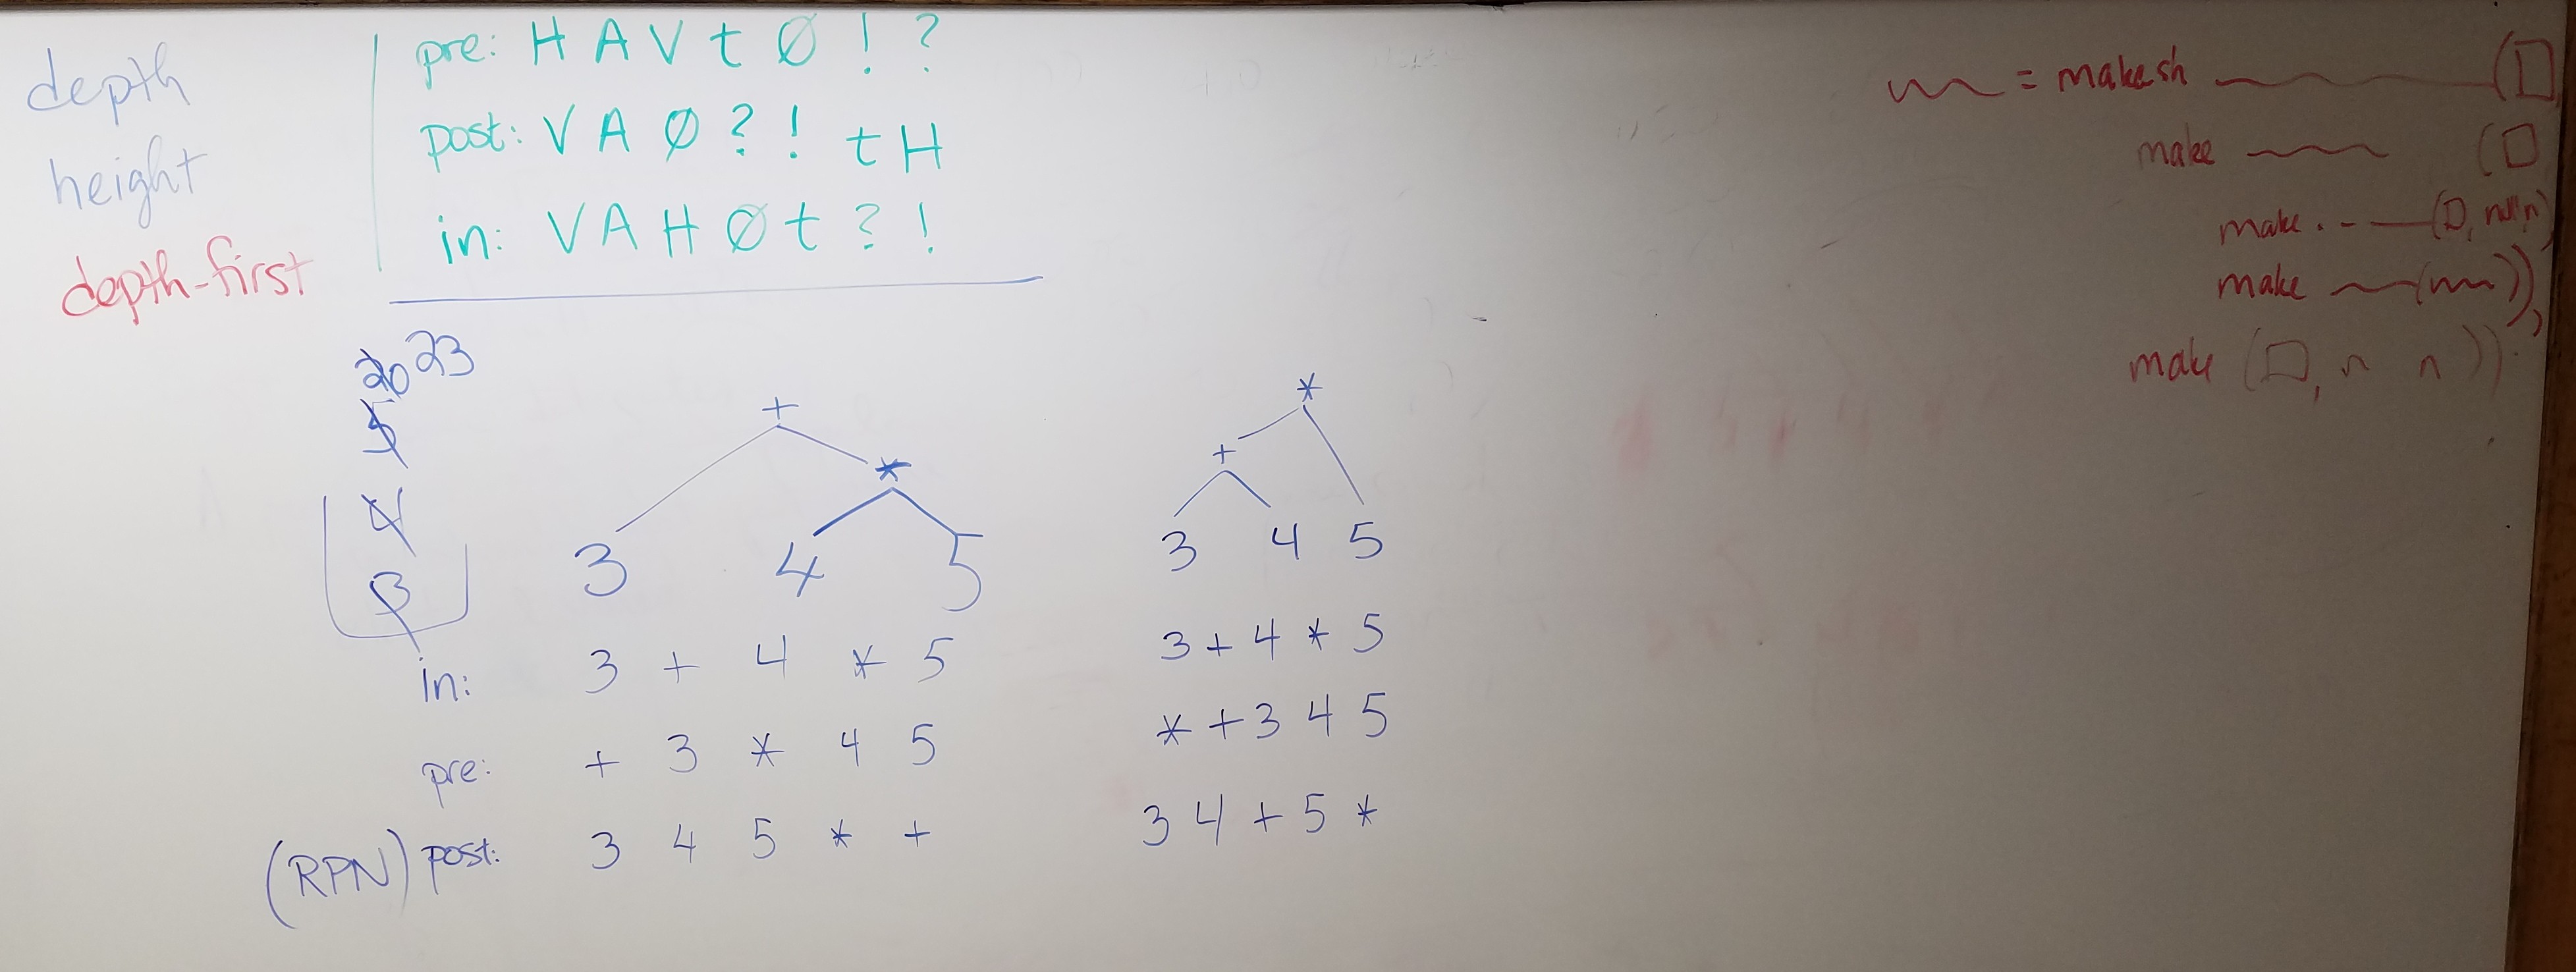 depth
height
depth-first
pre: H A V t Ø ! ?
post: V A Ø ? ! t H
in: V A H Ø t ? !
20 23
5
4
3
+
*
3 4 5
in: 3 + 4 * 5
pre: + 3 * 4 5
(RPN) post: 3 4 5 * +
*
+
3 4 5
3 + 4 * 5
* + 3 4 5
3 4 + 5 *
= makesh (
make (
make . - — ( , n
make ( )),
make ( , n n ))